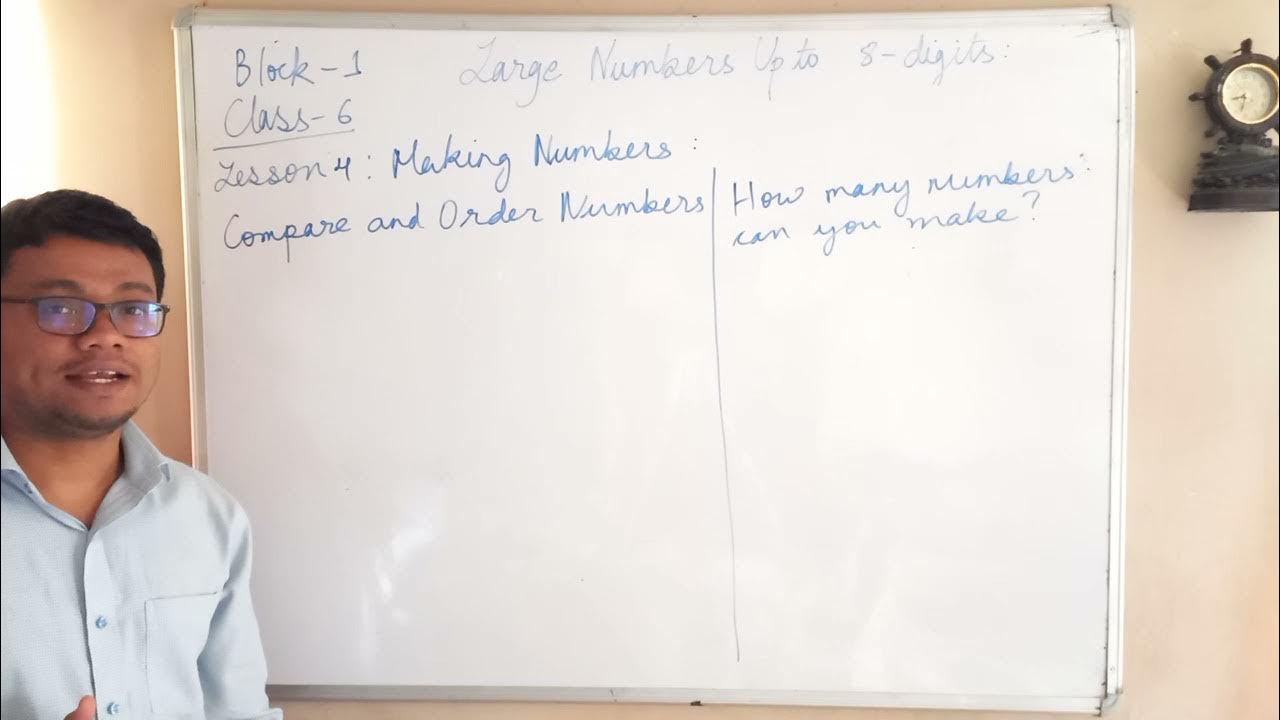 Block-1
Large Numbers Up to 8-digits:
Class-6
Lesson 4: Making Numbers:
Compare and Order Numbers
How many numbers:
can you make?